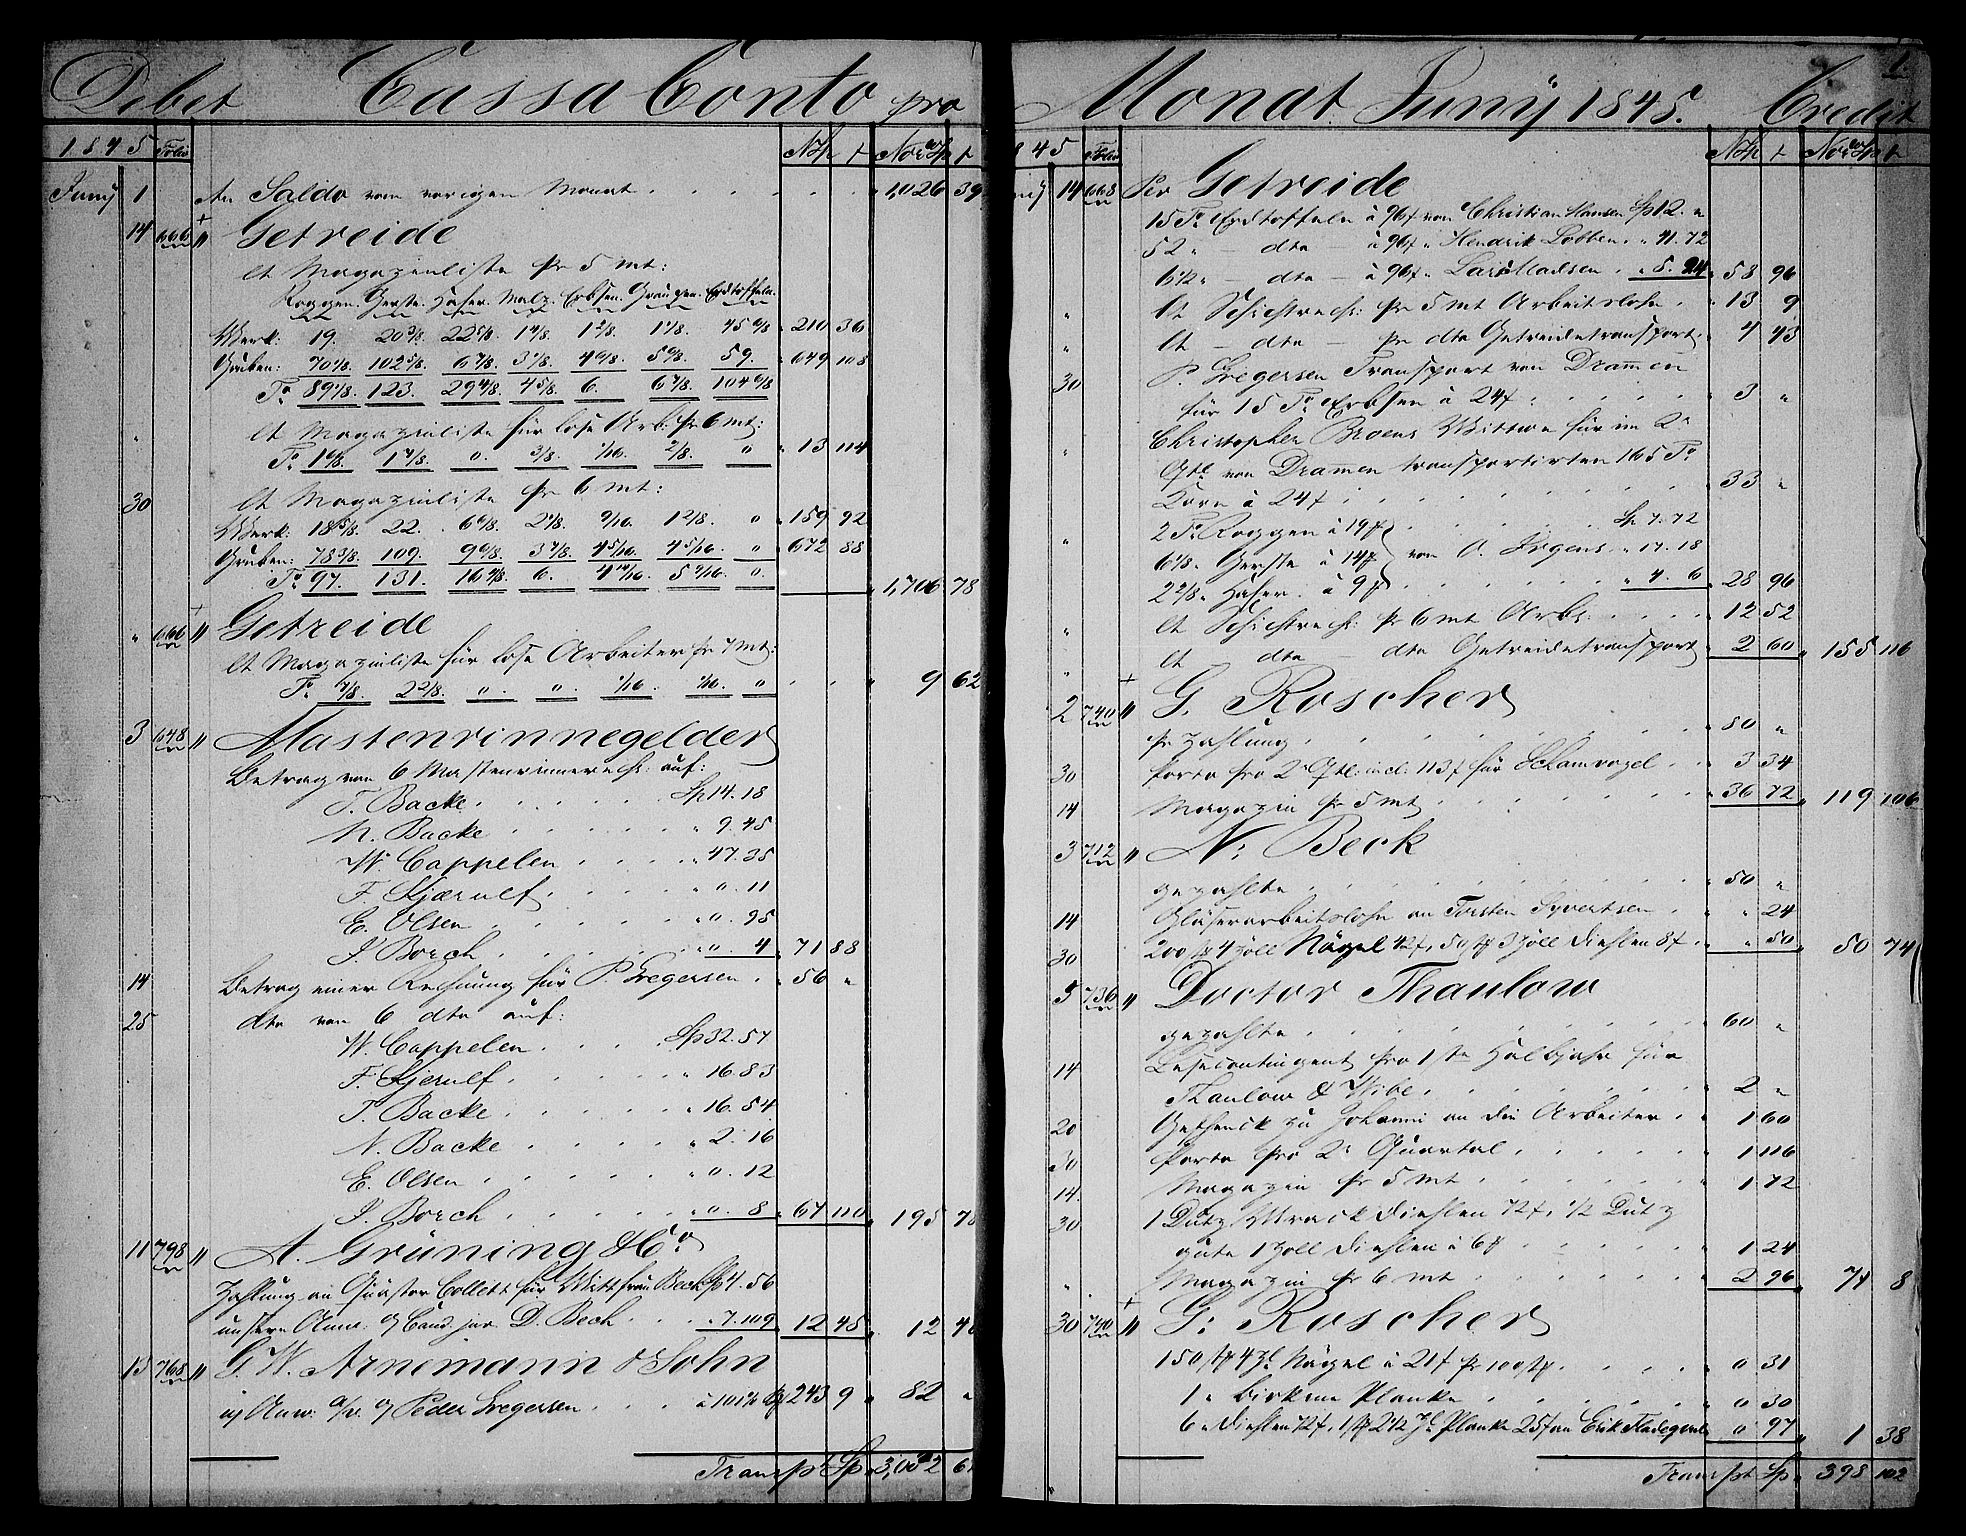 Debet Cassa Conto pro
1845 Folio NSp ß Norw Sp ß
Juny 1 An Saldo vom vorigen Monat . . . . 1,026 39
14 666 " Getreide
lt Magazinliste pr 5 mt:
Roggen. Gerste. Hafer. Malz. Erbsen. Graupen. Erdtoffeln.
Werk: 19. 20 3/8. 22 5/8. 1 4/8. 1 2/8. 1 1/8. 45 6/8 210 36
Gruben: 70 1/8. 102 5/8. 6 7/8. 3 1/8. 4 6/8. 5 6/8. 59. 649 108
To 89 1/8. 123. 29 4/8. 4 5/8. 6. 6 7/8. 104 6/8
" lt Magazinliste für lose Arb: pr 6 mt:
To 1 6/8. 1 7/8. " 3/8. 1/16. 2/8. " 13 114
30 lt Magazinliste pr 6 mt:
Werk: 18 5/8. 22. 6 6/8. 2 1/8. 9/16. 1 2/8. " 159 92
Gruben: 78 3/8. 109. 9 6/8. 3 7/8. 4 5/16. 4 5/16. " 672 88
To 97. 131. 16 4/8. 6. 4 14/16. 5 9/16. ". 1,706 78
" 666 " Getreide
lt Magazinliste für lose Arbeiter pr 7 mt:
To 7/8. 2 2/8. " " 1/16. 1/16. " . . 9 62
3 648 " Mastenrinnegelder
Betrag von 6 Mastenrinnerech: auf:
T. Backe . . . Sp 14. 18
N. Backe . . . " 9. 45
W. Cappelen . . . " 47. 35
F. Kjærulf . . . " 0. 11
E. Olsen . . . " 0. 95
J. Borch . . . " 0. 4 71 88
14 Betrag einer Rechnung für P. Gregersen . 56 "
25 dto von 6 dto auf:
W. Cappelen . . . Sp 32. 57
F. Kjerulf . . . " 16. 83
T. Backe . . . " 16. 54
N. Backe . . . " 2. 16
E. Olsen . . . " 0. 12
J. Borch . . . " 0. 8 67 110 195 78
11 798 " A. Grüning & Co
Zahlung an Quästor Collett für Wittfrau Beck Sp 4. 56
unsere Anw. o/ Cand. jur. D. Bech . . . " 7. 109 12 45 12 45
13 768 " G. W. Arnemann & Sohn
u/ Anw: o/ Peder Gregersen . . . 243 9 82 "
Transpt Sp 3,032
Monat Juny 1845. Credit
1.
1845 Folio NSp ß Norw Sp ß
Juny 14 668 Per Getreide
15 To Erdtoffeln à 96ß von Christian Hansen Sp 12. "
52 " — dto — à 96ß " Hendrik Lobben . " 41. 72
6 1/2 " — dto — à 96ß " Lars Madsen . " 5. 24 58 96
" lt Schichtrech: pr 5 mt Arbeitslohn . 13 9
" lt — dto — pr dto Getreidetransport . 4 43
30 P. Gregersen Transport von Drammen
für 15 To Erbsen à 24ß . . . 3 "
" Christopher Broens Wittwe für im 2n
Qtl von Dramen transportirten 165 To
Korn à 24ß . . . 33 "
" 2 To Roggen à 19ß . . . Sp 7. 72
6 1/8 " Gerste à 14ß von O. Irgens . " 17. 18
2 2/8 " Hafer . à 9ß . . . " 4. 6 28 96
" lt Schichtrech: pr 6 mt Arb: . . . 12 52
" lt dto — dto Getreidetransport 2 60 155 116
2 740 " G. Roscher
pr Zahlung . . . 80 "
30 Porto pro 2n Qtl: incl: 113ß für Schamvogel . 3 34
14 Magazin pr 5 mt . . . 36 72 119 106
3 712 " N: Beck
gezahlte . . . 50 "
14 Gläserarbeitslohn an Torsten Syvertsen . " 24
30 200 stk 4 Zoll Nägel 42ß, 50 stk 3 Zoll Diehlen 8ß . " 50 50 74
5 736 " Doctor Thaulow
gezahlte . . . 60 "
14 Lesecontingent pro 1ste Halbjahr für
Thaulow & Wibe . . . 2 "
20 Geschenck zu Johanni an die Arbeiter . 1 60
30 Porto pro 2n Quartal . . . 1 116
14. Magazin pr 5 mt . . . 1 72
30 1 Dutz Wrack Diehlen 72ß, 1/2 Dutz
gute 1 Zoll Diehlen à 6ß . . . 1 24
" Magazin pr 6 mt . . . 2 96 71 8
30 740 " G: Roscher
150 stk 4 Zl Nägel à 21ß pr 100 stk . . . 0 31
1 " birkene Planke . . . 0 30
6 " Diehlen 72ß, 1 stk 2 1/2 Zl Planke 25ß an Erik 0 97 1 38
Transpt Sp 398 102